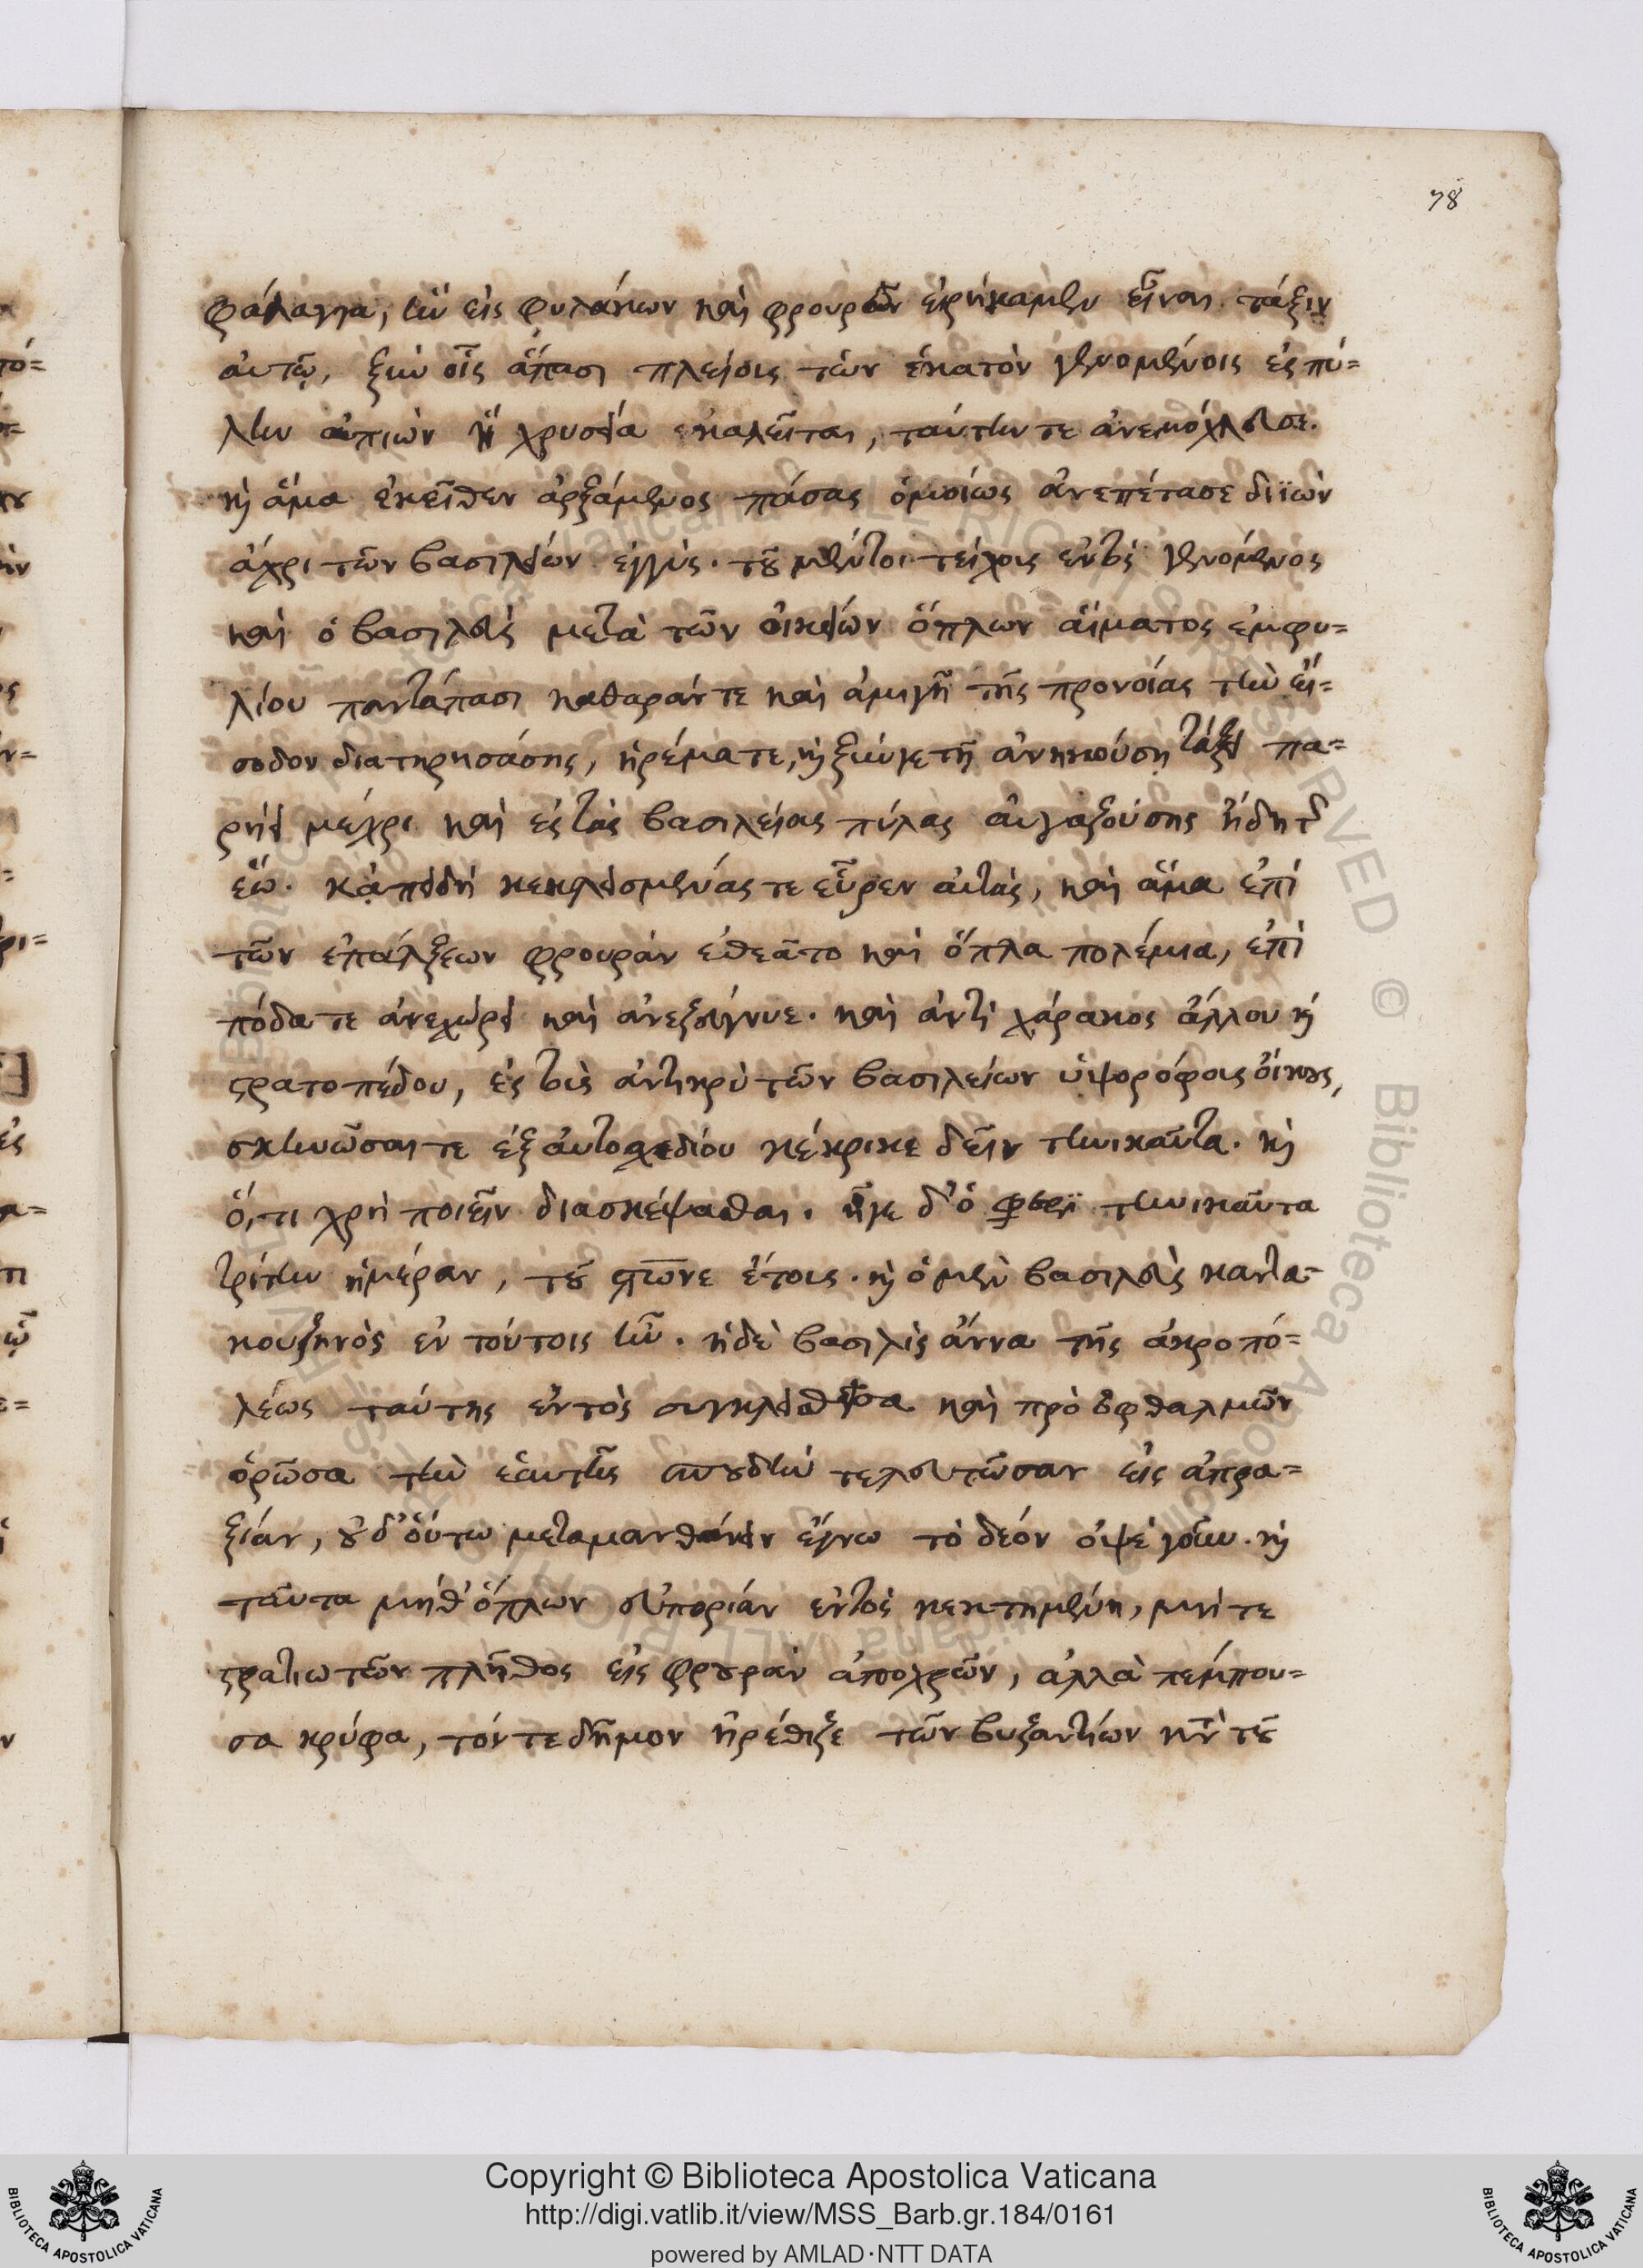 78
φάλαγγα, ἣν εἰς φυλάκων καὶ φρουρῶν εἰρήκαμεν εἶναι τάξιν
αὐτῷ, ξὺν οἷς ἅπασι πλείοσι τῶν ἑκατὸν γενομένοις ἐς πύ=
λην ἀπιὼν ἣ χρυσεία ἐκαλεῖται, ταύτην τε ἀνεμόχλευσε.
κỳ ἅμα ἐκεῖθεν ἀρξάμενος πάσας ὁμοίως ἀνεπέτασε διϊὼν
ἄχρι τῶν βασιλείων ἐγγύς. τοῦ μέντοι τείχους ἐντὸς γενόμενος
καὶ ὁ βασιλεὺς μετὰ τῶν οἰκείων ὅπλων αἵματος ἐμφυ=
λίου παντάπασι καθαράν τε καὶ ἀμιγῆ τῆς προνοίας τὴν εἴ=
σοδον διατηρησάσης, ἠρέμα τε, καὶ ξύν γε τῇ ἀνηκούσῃ τάξει πα=
ρῄει μέχρι καὶ ἐς τὰς βασιλείας πύλας αὐγαζούσης ἤδη τῆς
ἕω. κἀπειδὴ κεκλεισμένας τε εὗρεν αὐτὰς, καὶ ἅμα ἐπὶ
τῶν ἐπάλξεων φρουρὰν ἐθεᾶτο καὶ ὅπλα πολέμια, ἐπὶ
πόδα τε ἀνεχώρει καὶ ἀνεζεύγνυε. καὶ ἀντὶ χάρακος ἄλλου καὶ
στρατοπέδου, ἐς τοὺς ἀντικρὺ τῶν βασιλείων ὑψορόφους οἴκους,
σκηνῶσαί τε ἐξ αὐτοσχεδίου κέκρικε δεῖν τηνικαῦτα. καὶ
ὅ,τι χρὴ ποιεῖν διασκέψασθαι. ἦγε δ' ὁ φευρουάριος τηνικαῦτα
τρίτην ἡμέραν, τοῦ ϛωνε ἔτους. καὶ ὁ μὲν βασιλεὺς καντα=
κουζηνὸς ἐν τούτοις ἦν. ἡ δὲ βασιλὶς ἄννα τῆς ἀκροπό=
λεως ταύτης ἐντὸς συγκλεισθεῖσα καὶ πρὸ ὀφθαλμῶν
ὁρῶσα τὴν ἑαυτῆς σπουδὴν τελευτῶσαν εἰς ἀπρα=
ξίαν, οὐδ' οὕτω μεταμανθάνειν ἔγνω τὸ δέον ὀψὲ γοῦν. καὶ
ταῦτα μήθ' ὅπλων εὐπορίαν ἐντὸς κεκτημένη, μήτε
στρατιωτῶν πλῆθος εἰς φρουρὰν ἀποχρῶν, ἀλλὰ πέμπου=
σα κρύφα, τόν τε δῆμον ἠρέθιζε τῶν βυζαντίων κατὰ τοῦ
Copyright © Biblioteca Apostolica Vaticana
http://digi.vatlib.it/view/MSS_Barb.gr.184/0161
powered by AMLAD·NTT DATA
BIBLIOTECA APOSTOLICA VATICANA
BIBLIOTECA APOSTOLICA VATICANA